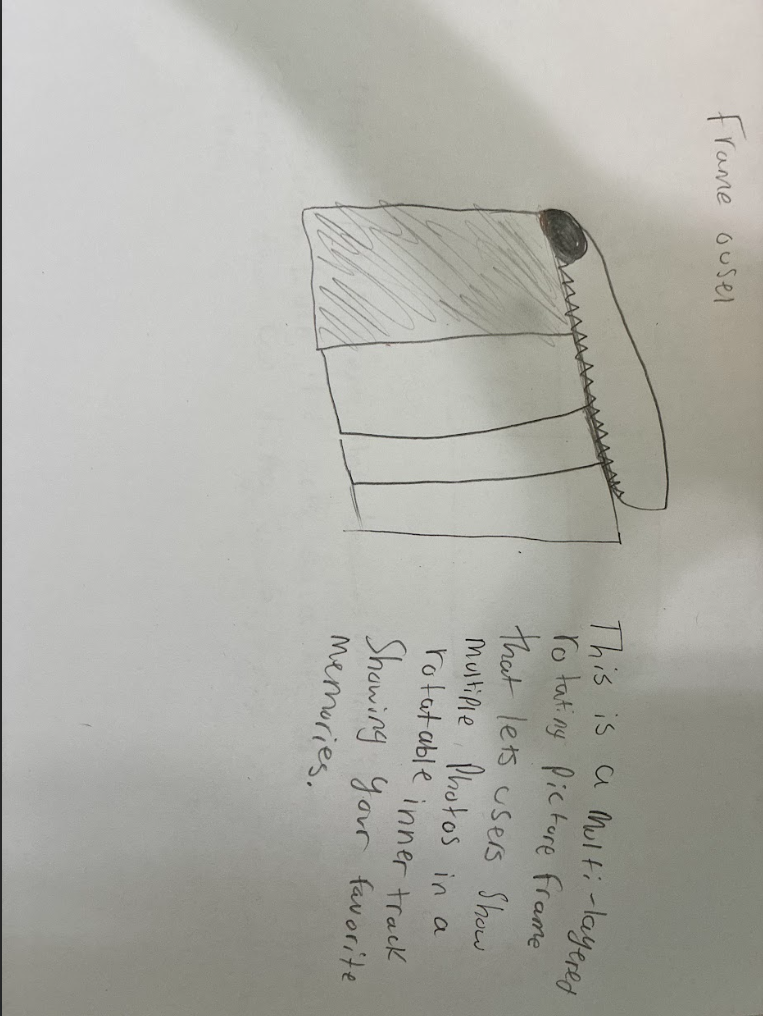 Frame ousel
This is a Multi-layered
rotating Picture frame
that lets users Show
Multiple Photos in a
rotatable inner track
Showing your favorite
Memories.